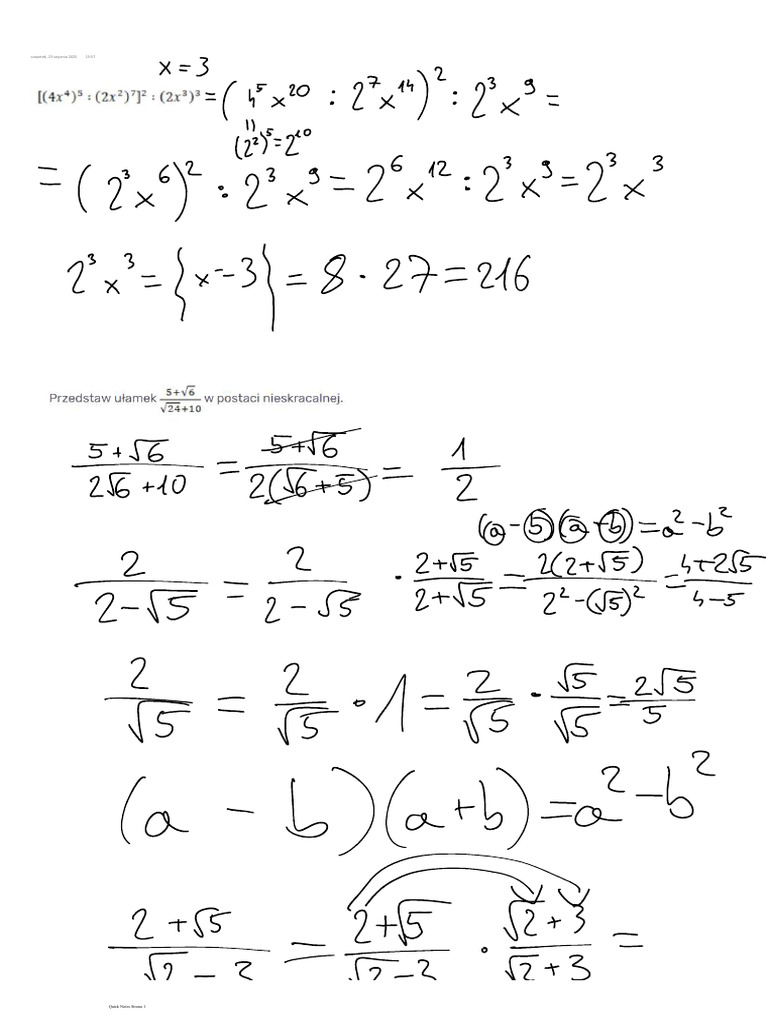 x = 3
[(4x⁴)⁵ : (2x²)⁷]² : (2x³)³ = (4⁵x²⁰ : 2⁷x¹⁴)² : 2³x⁹ =
(2²)⁵ = 2¹⁰
= (2³x⁶)² : 2³x⁹ = 2⁶x¹² : 2³x⁹ = 2³x³
2³x³ = {x-3} = 8 · 27 = 216
Przedstaw ułamek (5+√6)/(√24+10) w postaci nieskracalnej.
(5+√6)/(2√6+10) = (5+√6)/(2(√6+5)) = 1/2
(a-b)(a-b) = a²-b²
2/(2-√5) = 2/(2-√5) · (2+√5)/(2+√5) = 2(2+√5)/(2²-(√5)²) = (4+2√5)/(4-5)
2/√5 = 2/√5 · 1 = 2/√5 · √5/√5 = 2√5/5
(a - b)(a+b) = a²-b²
(2+√5)/(√2-3) = (2+√5)/(√2-3) · (√2+3)/(√2+3) =
Quick Notes Strona 1